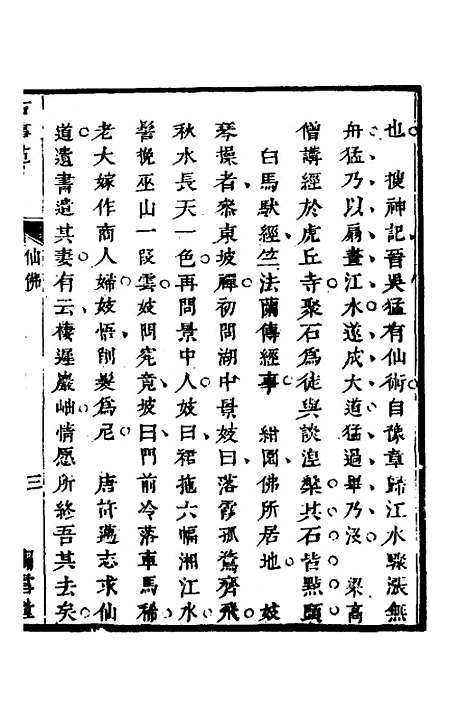 也。 搜神記晉吳猛有仙術自豫章歸江水驟漲無
舟猛乃以扇畫江水遂成大道猛過畢乃沒 梁高
僧講經於虎丘寺聚石爲徒與談湼槃其石皆點頭
白馬馱經竺法蘭傳經事 紺園佛所居地 妓
琴操者叅東坡禪初問湖中景妓曰落霞孤鶩齊飛
秋水長天一色再問景中人妓曰裙拖六幅湘江水
髻挽巫山一段雲妓問究竟坡曰門前冷落車馬稀
老大嫁作商人婦妓悟削髮爲尼 唐許邁志求仙
道遺書遣其妻有云棲遲巖岫情愿所終吾其去矣
仙佛
三